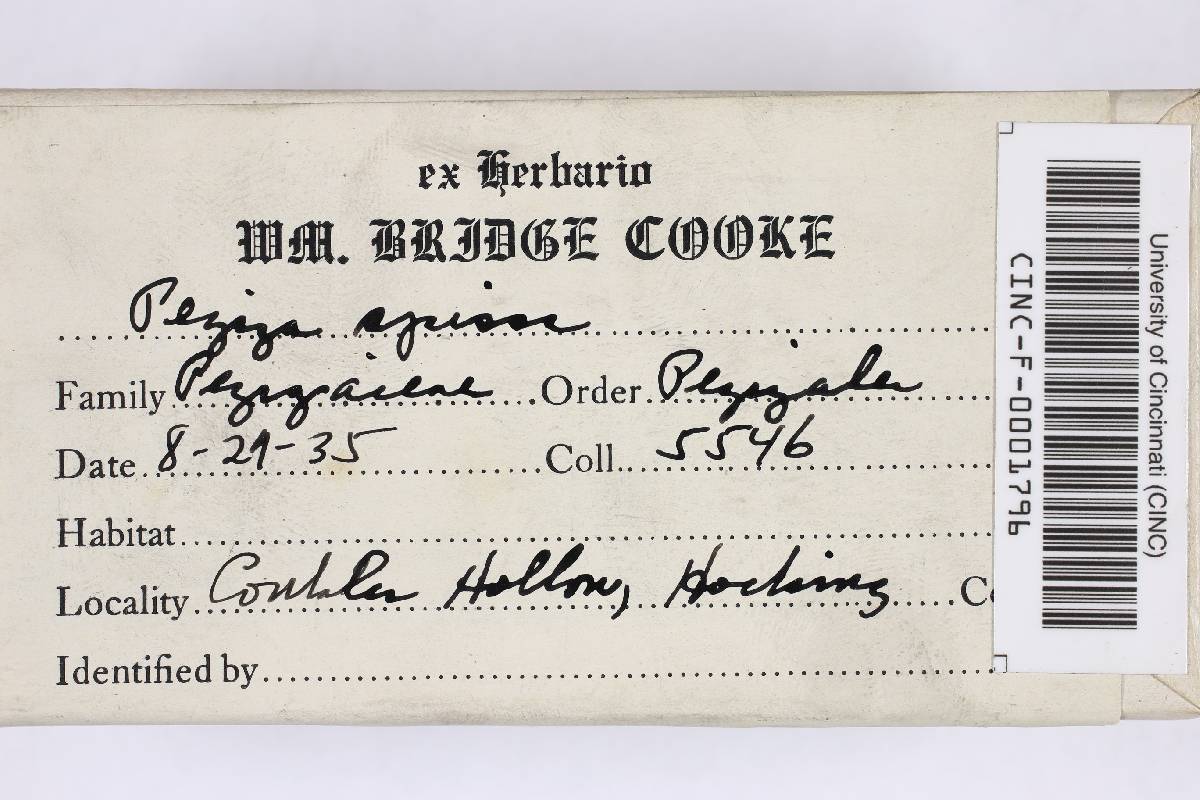 ex Herbario
WM. BRIDGE COOKE
Peziza
Family Pezizaceae Order Pezizales
Date 8-29-35 Coll. 5546
Habitat
Locality Conkles Hollow, Hocking C
Identified by
University of Cincinnati (CINC)
CINC-F-0001796